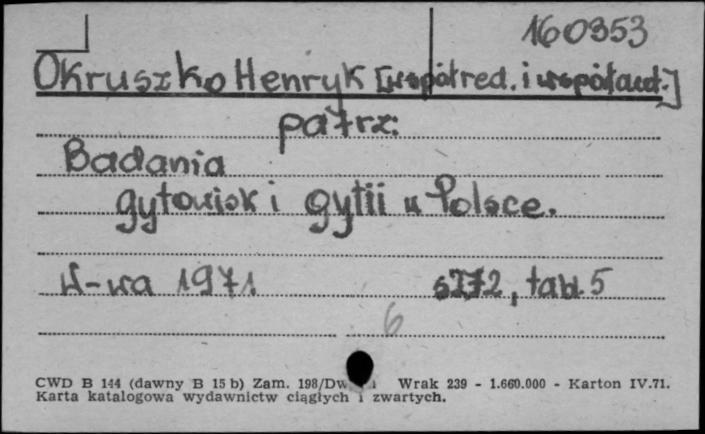 160353
Okruszko Henryk [współred. i współaut.]
patrz:
Badania
gytowisk i gytii w Polsce.
W-wa 1971. s.172, tabl. 5
6
CWD B 144 (dawny B 15 b) Zam. 198/Dw Wrak 239 - 1.660.000 - Karton IV.71.
Karta katalogowa wydawnictw ciągłych i zwartych.